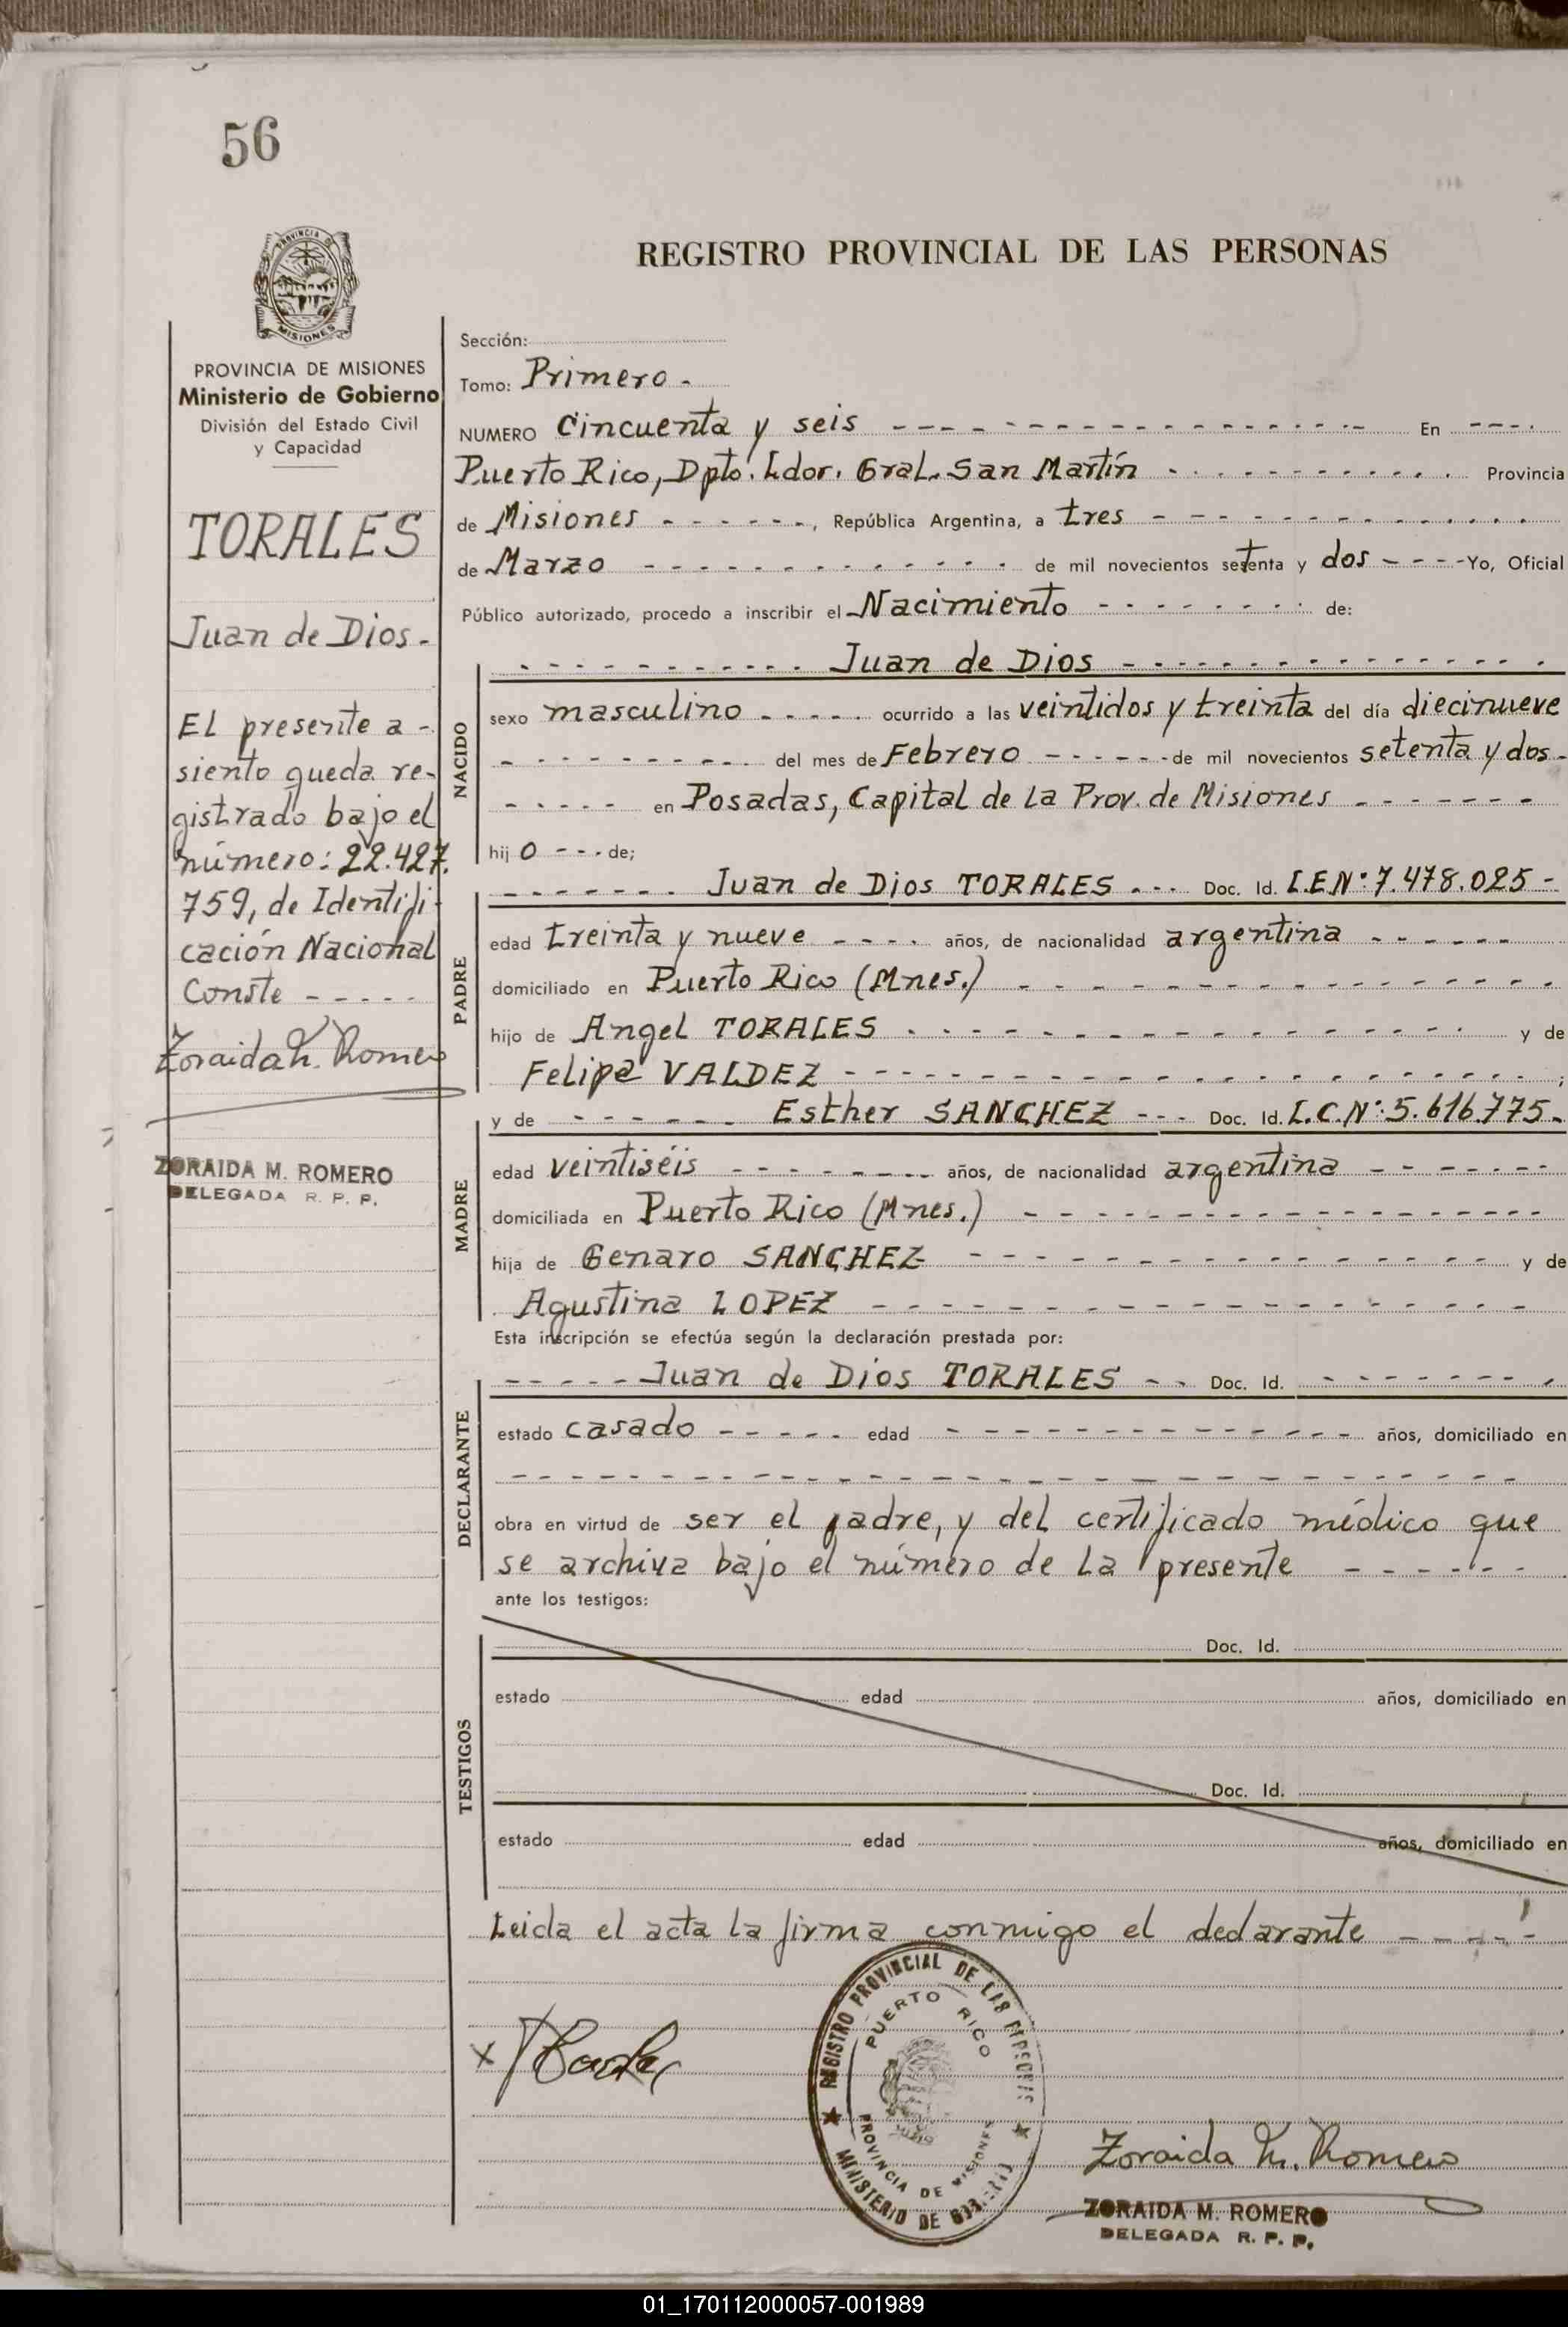 56
PROVINCIA DE
MISIONES
PROVINCIA DE MISIONES
Ministerio de Gobierno
División del Estado Civil
y Capacidad
TORALES
Juan de Dios -
El presente a -
siento queda re-
gistrado bajo el
número: 22.427.
759, de Identifi-
cación Nacional
Conste - - - - -
Zoraida M. Romero
ZORAIDA M. ROMERO
DELEGADA R. P. P.
REGISTRO PROVINCIAL DE LAS PERSONAS
Sección:
Tomo: Primero -
NUMERO Cincuenta y seis - - - - En - - - -
Puerto Rico, Dpto. Ldor. Gral. San Martín - - - - Provincia
de Misiones - - - - , República Argentina, a tres - - - -
de Marzo - - - - de mil novecientos setenta y dos - - - - Yo, Oficial
Público autorizado, procedo a inscribir el Nacimiento - - - - de:
- - - - Juan de Dios - - - -
NACIDO
sexo masculino - - - - ocurrido a las veintidos y treinta del día diecinueve
- - - - del mes de Febrero - - - - de mil novecientos setenta y dos -
- - - - en Posadas, Capital de la Prov. de Misiones - - - -
hij o - - - de;
PADRE
- - - - Juan de Dios TORALES - - - Doc. Id. L.E.Nº: 7.478.025 -
edad treinta y nueve - - - - años, de nacionalidad argentina - - - -
domiciliado en Puerto Rico (Mnes.) - - - -
hijo de Angel TORALES - - - - y de
Felipa VALDEZ - - - - ;
MADRE
y de - - - - Esther SANCHEZ - - - Doc. Id. L.C.Nº: 5.616.775 -
edad veintiséis - - - - años, de nacionalidad argentina - - - -
domiciliada en Puerto Rico (Mnes.) - - - -
hija de Genaro SANCHEZ - - - - y de
Agustina LOPEZ - - - -
Esta inscripción se efectúa según la declaración prestada por:
DECLARANTE
- - - - Juan de Dios TORALES - - Doc. Id. - - - -
estado casado - - - - edad - - - - años, domiciliado en
- - - -
obra en virtud de ser el padre, y del certificado médico que
se archiva bajo el número de la presente - - - -
ante los testigos:
TESTIGOS
Doc. Id.
estado edad años, domiciliado en
Doc. Id.
estado edad años, domiciliado en
Leida el acta la firma conmigo el declarante - - - -
x
REGISTRO PROVINCIAL DE LAS PERSONAS
PUERTO RICO
PROVINCIA DE MISIONES
MINISTERIO DE GOBIERNO
Zoraida M. Romero
ZORAIDA M. ROMERO
DELEGADA R. P. P.
01_170112000057-001989